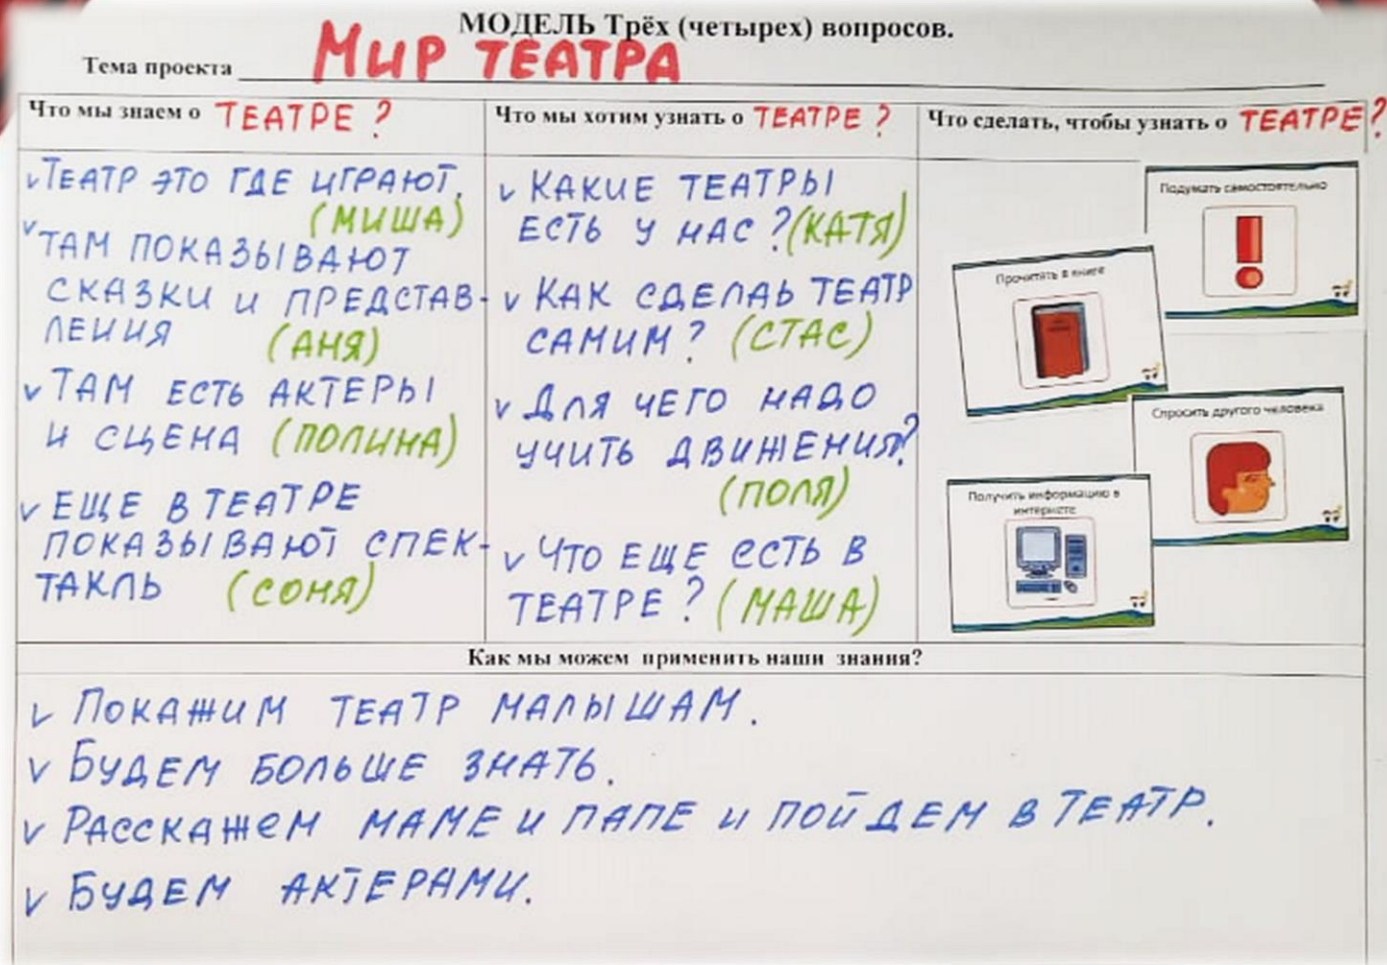 МОДЕЛЬ Трёх (четырех) вопросов.
Тема проекта МИР ТЕАТРА
Что мы знаем о ТЕАТРЕ?
ТЕАТР ЭТО ГДЕ ИГРАЮТ.
(МИША)
ТАМ ПОКАЗЫВАЮТ
СКАЗКИ И ПРЕДСТАВ-
ЛЕНИЯ (АНЯ)
ТАМ ЕСТЬ АКТЕРЫ
И СЦЕНА (ПОЛИНА)
ЕЩЕ В ТЕАТРЕ
ПОКАЗЫВАЮТ СПЕК-
ТАКЛЬ (СОНЯ)
Что мы хотим узнать о ТЕАТРЕ?
КАКИЕ ТЕАТРЫ
ЕСТЬ У НАС? (КАТЯ)
КАК СДЕЛАЬ ТЕАТР
САМИМ? (СТАС)
ДЛЯ ЧЕГО НАДО
УЧИТЬ ДВИЖЕНИЯ?
(ПОЛЯ)
ЧТО ЕЩЕ ЕСТЬ В
ТЕАТРЕ? (МАША)
Что сделать, чтобы узнать о ТЕАТРЕ?
Подумать самостоятельно
Прочитать в книге
Спросить другого человека
Получить информацию в
интернете
Как мы можем применить наши знания?
ПОКАЖИМ ТЕАТР МАЛЫШАМ.
БУДЕМ БОЛЬШЕ ЗНАТЬ.
РАССКАЖЕМ МАМЕ И ПАПЕ И ПОЙДЕМ В ТЕАТР.
БУДЕМ АКТЕРАМИ.